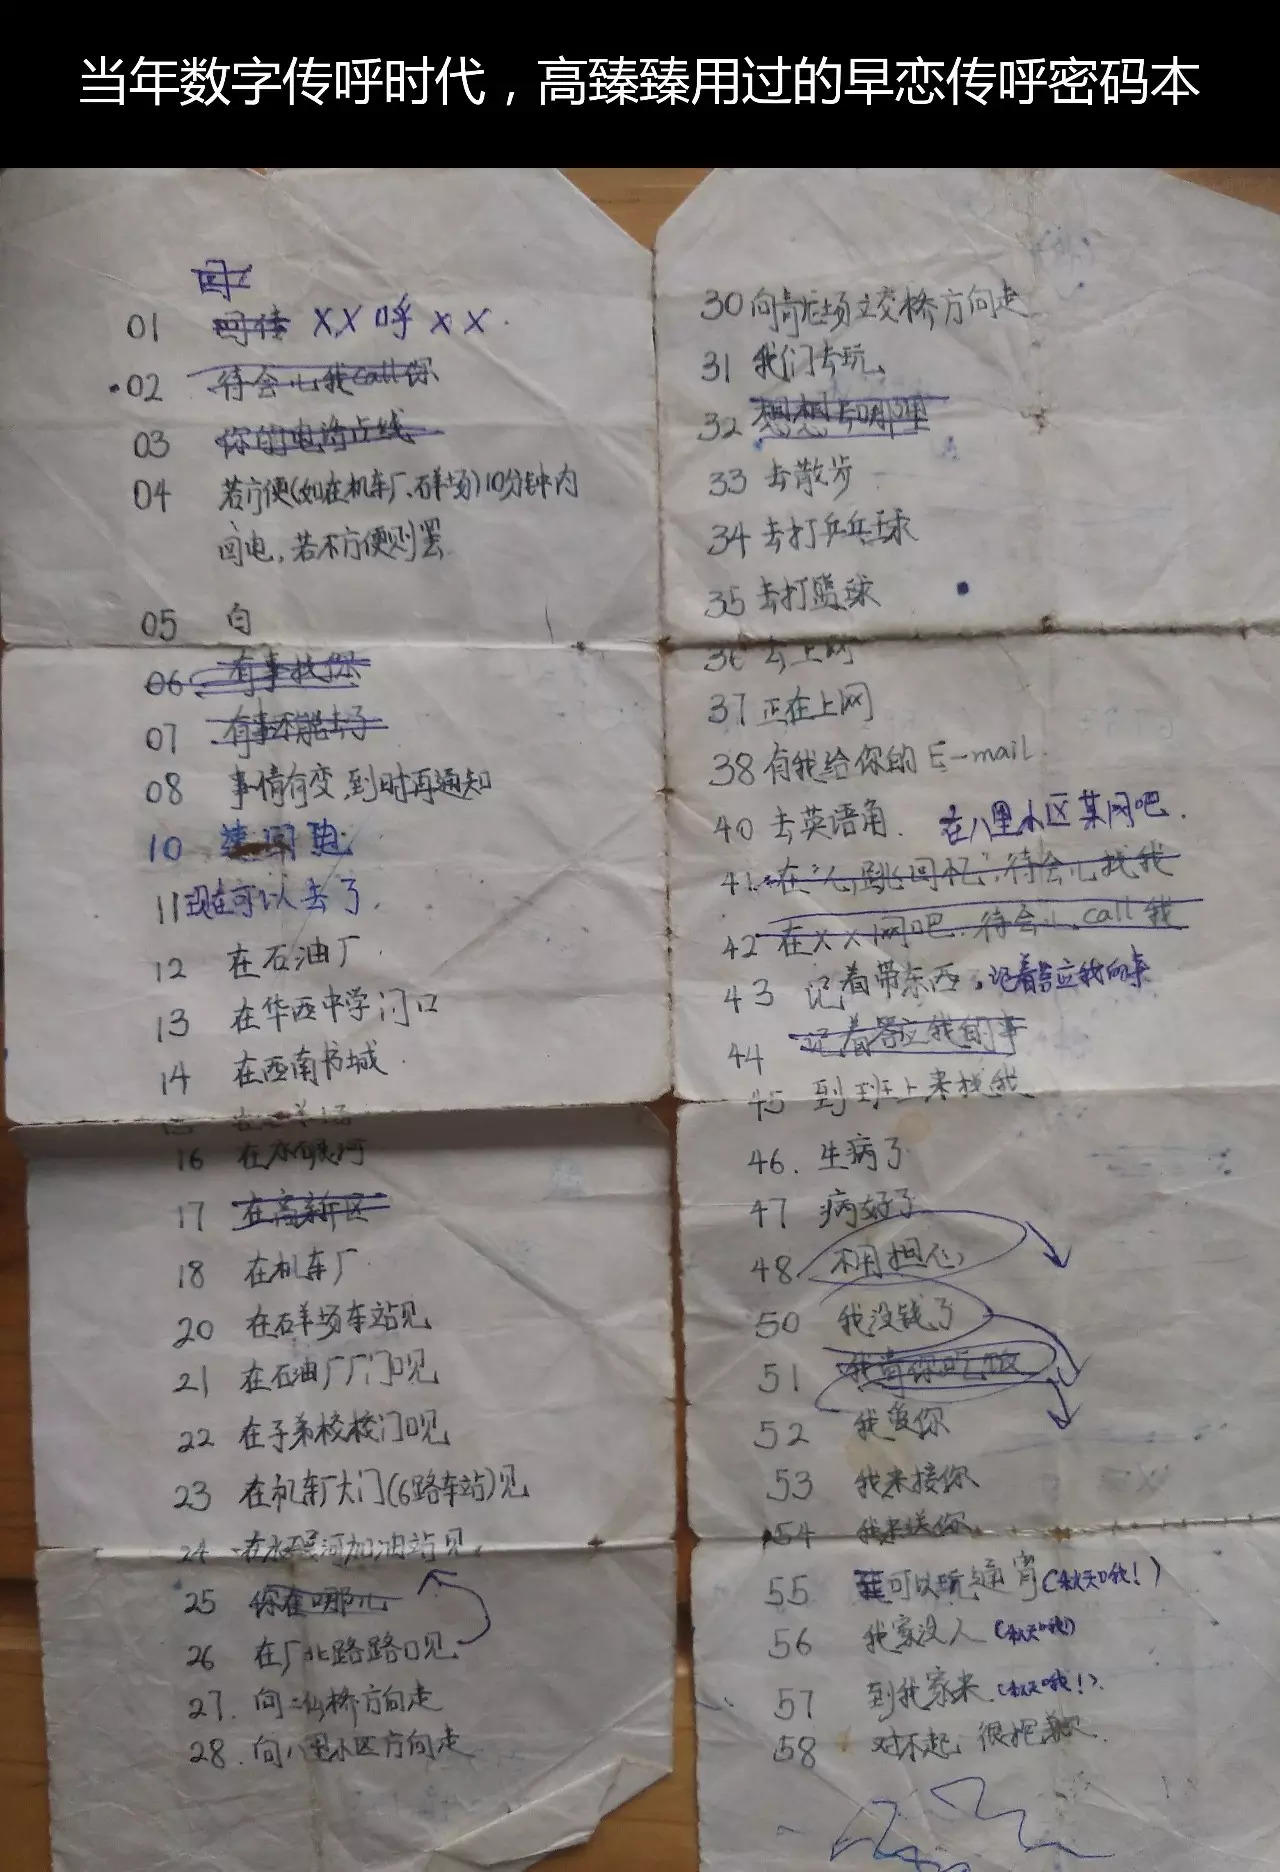 当年数字传呼时代，高臻臻用过的早恋传呼密码本
回
01 回传 XX呼XX.
02 待会儿我call你
03 你的电话占线
04 若方便(如在机车厂、石羊场)10分钟内
回电，若不方便则罢
05 白
06 有事找你
07 有事不能去了
08 事情有变,到时再通知
10 速回电
11 现在可以去了.
12 在石油厂
13 在华西中学门口
14 在西南书城
16
17 在高新区
18 在机车厂
20 在石羊场车站见
21 在石油厂厂门口见
22 在子弟校校门口见
23 在机车厂大门(6路车站)见
24 加油站见.
25 你在哪儿
26 在厂北路路口见
27. 向二仙桥方向走
28. 向八里小区方向走
30 向立交桥方向走
31 我们去玩
32 想想去哪里
33 去散步
34 去打乒乓球
35 去打篮球
36 去上网
37 正在上网
38 有我给你的E-mail.
40 去英语角. 在八里小区某网吧.
41. 在"心跳回忆",待会儿找我
42 在XX网吧.待会儿call我
43 记着带东西,记着答应我的事
44 记着答应我的事
45 到班上来找我
46. 生病了
47 病好了
48 不用担心
50 我没钱了
51 我请你吃饭
52 我爱你
53 我来接你
54 我来送你
55 我可以玩通宵(秋天哦!)
56 我家没人(秋天哦!)
57 到我家来.(秋天哦!).
58 对不起,很抱歉.